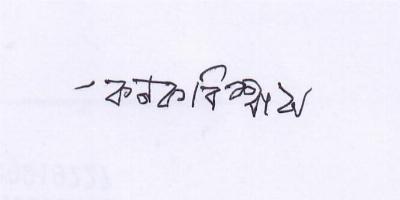 কনক বিশ্বাস